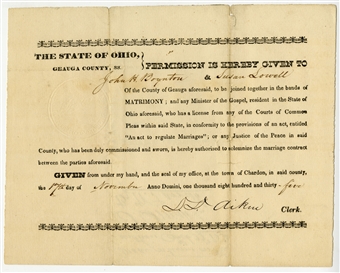 THE STATE OF OHIO,
GEAUGA COUNTY, SS.
PERMISSION IS HEREBY GIVEN TO
John H. Boynton & Susan Lowell
Of the County of Geauga aforesaid, to be joined together in the bands of
MATRIMONY; and any Minister of the Gospel, resident in the State of
Ohio aforesaid, who has a license from any of the Courts of Common
Pleas within said State, in conformity to the provisions of an act, entitled
"An act to regulate Marriages"; or any Justice of the Peace in said
County, who has been duly commissioned and sworn, is hereby authorized to solemnize the marriage contract
between the parties aforesaid.
GIVEN from under my hand, and the seal of my office, at the town of Chardon, in said county,
the 17th day of November Anno Domini, one thousand eight hundred and thirty-five
D. D. Aiken Clerk.